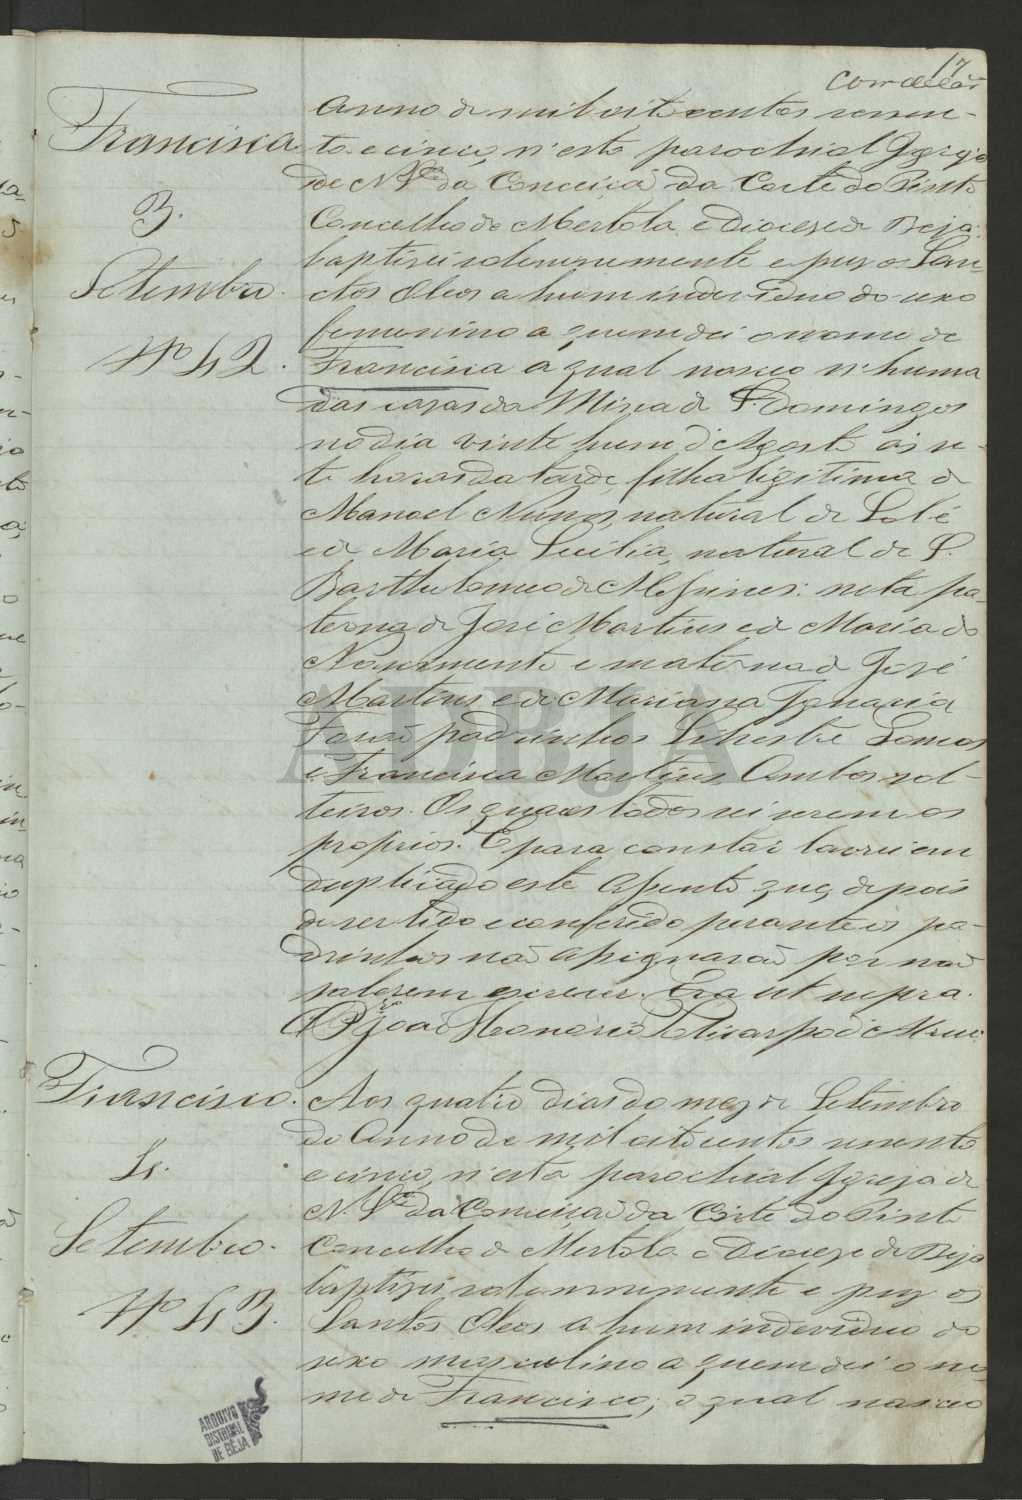 17
Francisca
3.
Setembro.
Nº 42.
Anno de mil oito centos sessen-
ta e cinco, n'esta parochial Igreja
de N. Srª da Conceiçã da Corte do Pinto
Concelho de Mertola e Diocese de Beja:
baptizei solemnemente e puz os San-
ctos Oleos a hum individuo do sexo
femenino a quem dei o nome de
Francisca a qual nasceo n'huma
das cazas da Mina de S. Domingos
no dia vinte hum d'Agosto ás se-
te horas da tarde, filha legitima de
Manoel Nunes, natural de Lolé
e de Maria Lucilia, natural de S.
Bartholomeo de Messines: neta pa-
terna de José Martins e de Maria do
Nascimento e materna de José
Martins e de Marianna Ignacia
Forão padrinhos Silvestre Lemos
e Francisca Martins, Ambos sol-
teiros. Os quaes todos sei serem os
proprios. E para constar lavrei em
duplicado este Assento que, depois
de ser lido e conferido perante os pa-
drinhos não assignarão por não
saberem escrever. Era ut supra.
O Pr João Honorio Policarpo d'
Francisco.
4.
Setembro.
Nº 43.
Aos quatro dias do mez de Setembro
do Anno de mil oitocentos sesenta
e cinco, n'esta parochial Igreja de
N. Srª da Conceiçã da Corte do Pinto
Concelho de Mertola e Diocese de Beja
baptizei solemnemente e puz os
Santos Oleos a hum individuo do
sexo masculino a quem dei o no-
me de Francisco; o qual nasceo
ADBJA
ARQUIVO
DISTRITAL
DE BEJA